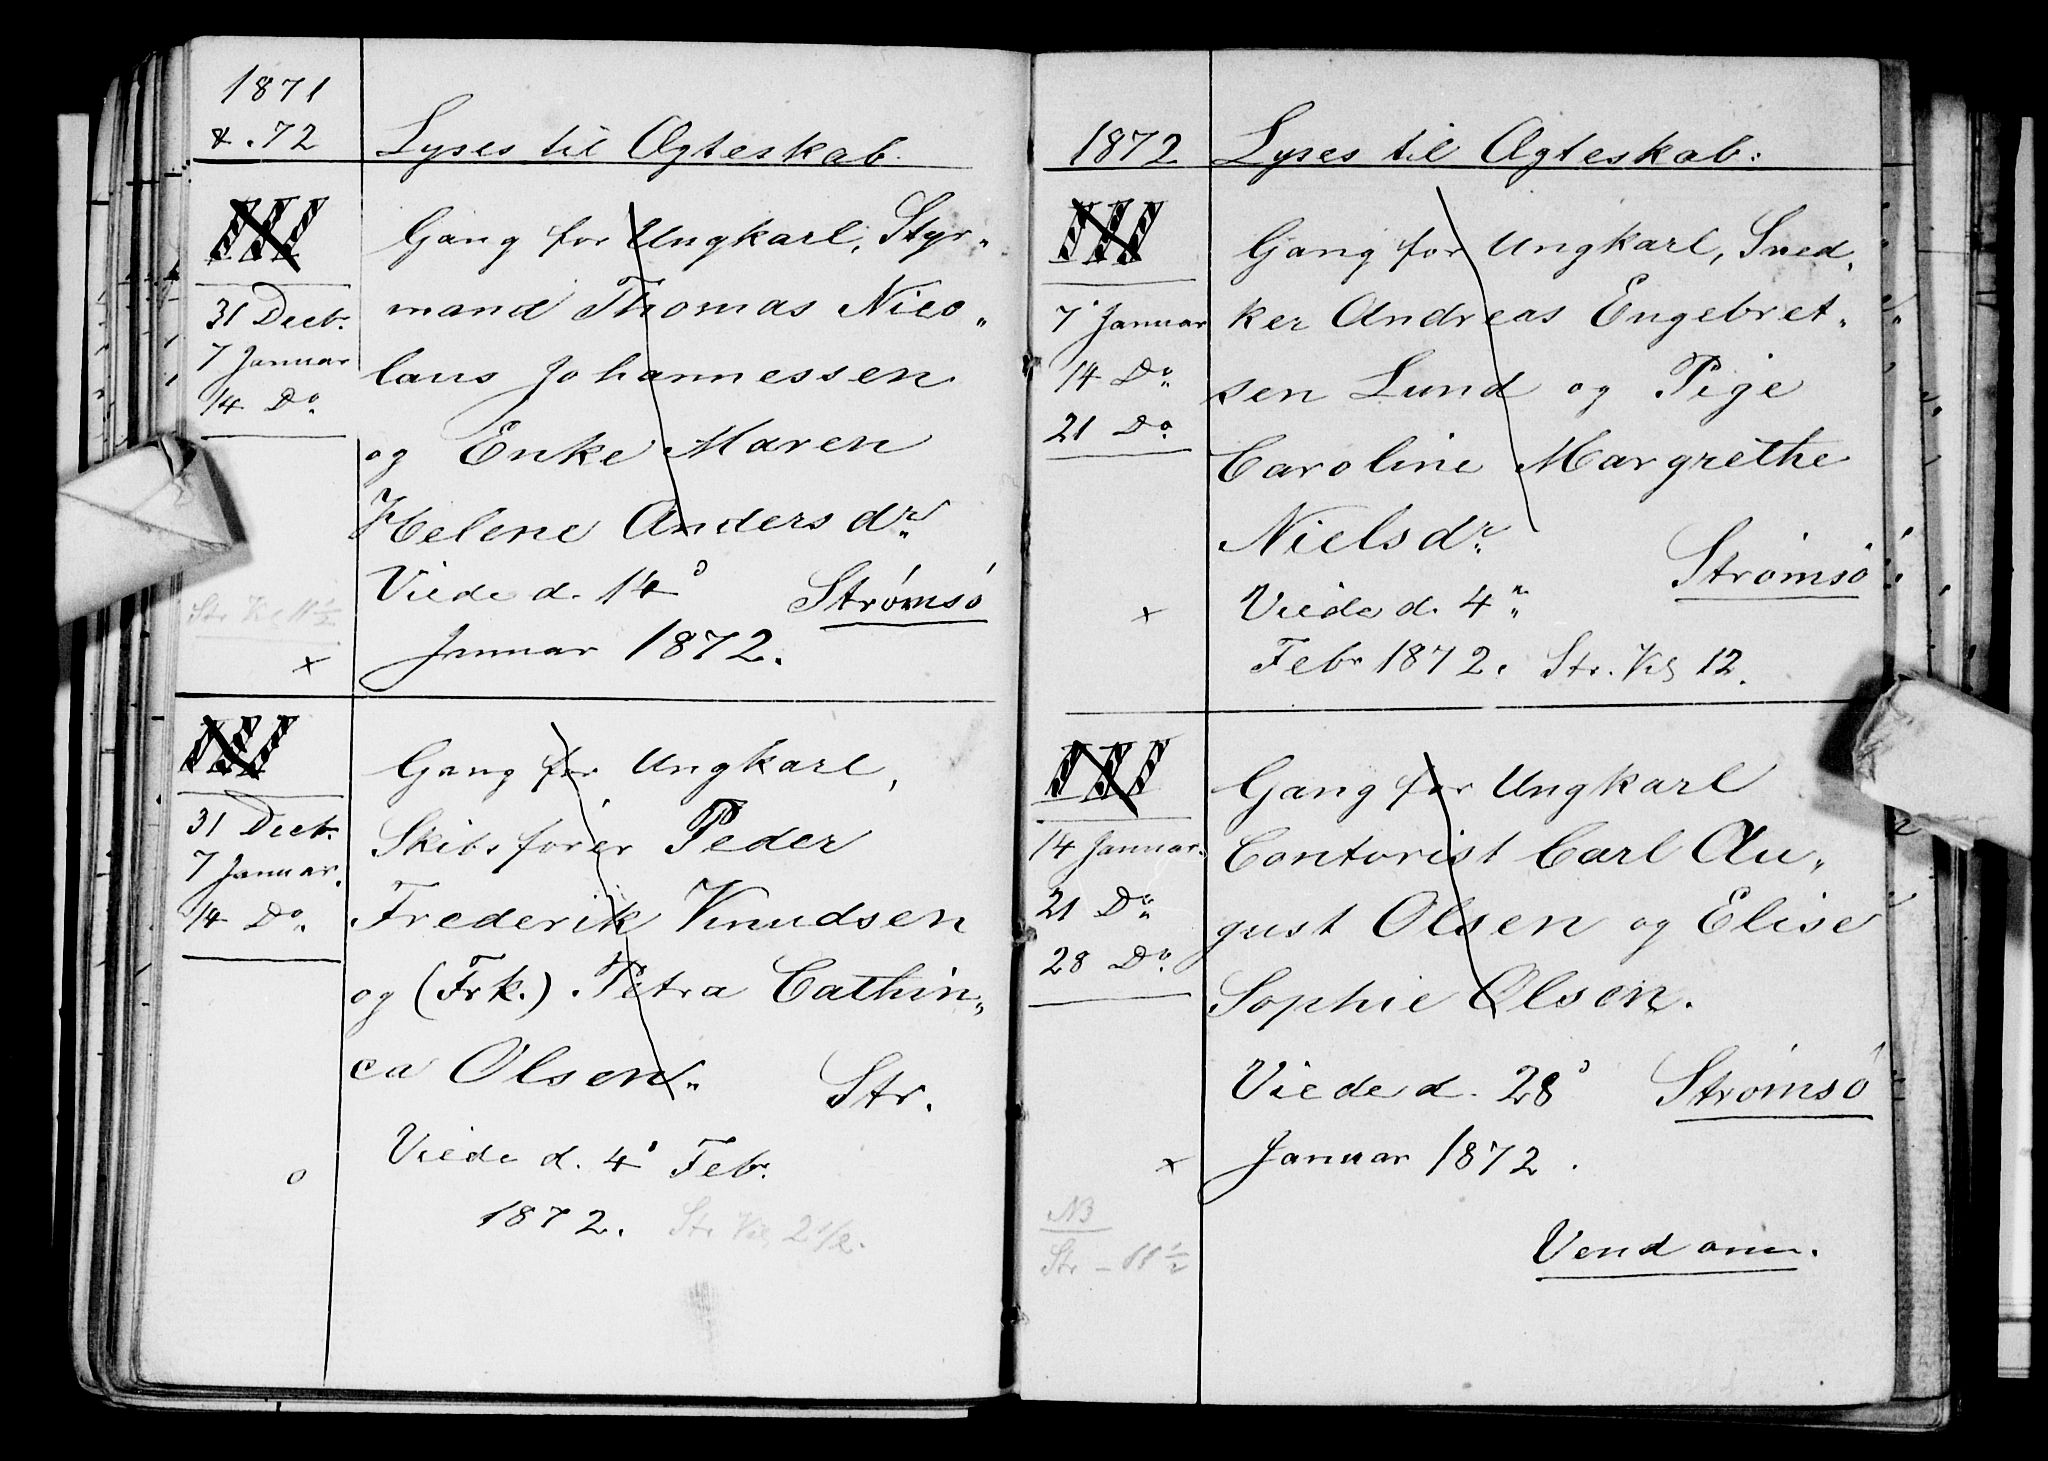 1871
& .72
Lyses til Ægteskab.
III
31 Decb.
7 Januar
14 Do.
Gang for Ungkarl, Styr„
mand Thomas Nico„
laus Johannessen
og Enke Maren
Helene Andersdr.
Viede d. 14d Strømsø
Januar 1872.
Str Kl 11 1/2
x
III
31 Decb.
7 Januar.
14 Do.
Gang for Ungkarl,
Skibsfører Peder
Frederik Knudsen
og (Frk.) Petra Cathin„
ca Olsen.
Str.
Viede d. 4d Feb.
1872. Str Kl. 2 1/2.
o
1872
Lyses til Ægteskab.
III
7 Januar
14 Do.
21 Do.
Gang for Ungkarl, Sned„
ker Andreas Engebret„
sen Lund og Pige
Caroline Margrethe
Nielsdr.
Strømsø
x
Viede d. 4de
Febr 1872. Str. Kl 12.
III
14 Januar.
21 Do.
28 Do.
Gang for Ungkarl
Contorist Carl Au„
gust Olsen og Elise
Sophie Olsen.
Viede d. 28d Strømsø
x
Januar 1872.
NB
Str – 11 1/2
Vend om.